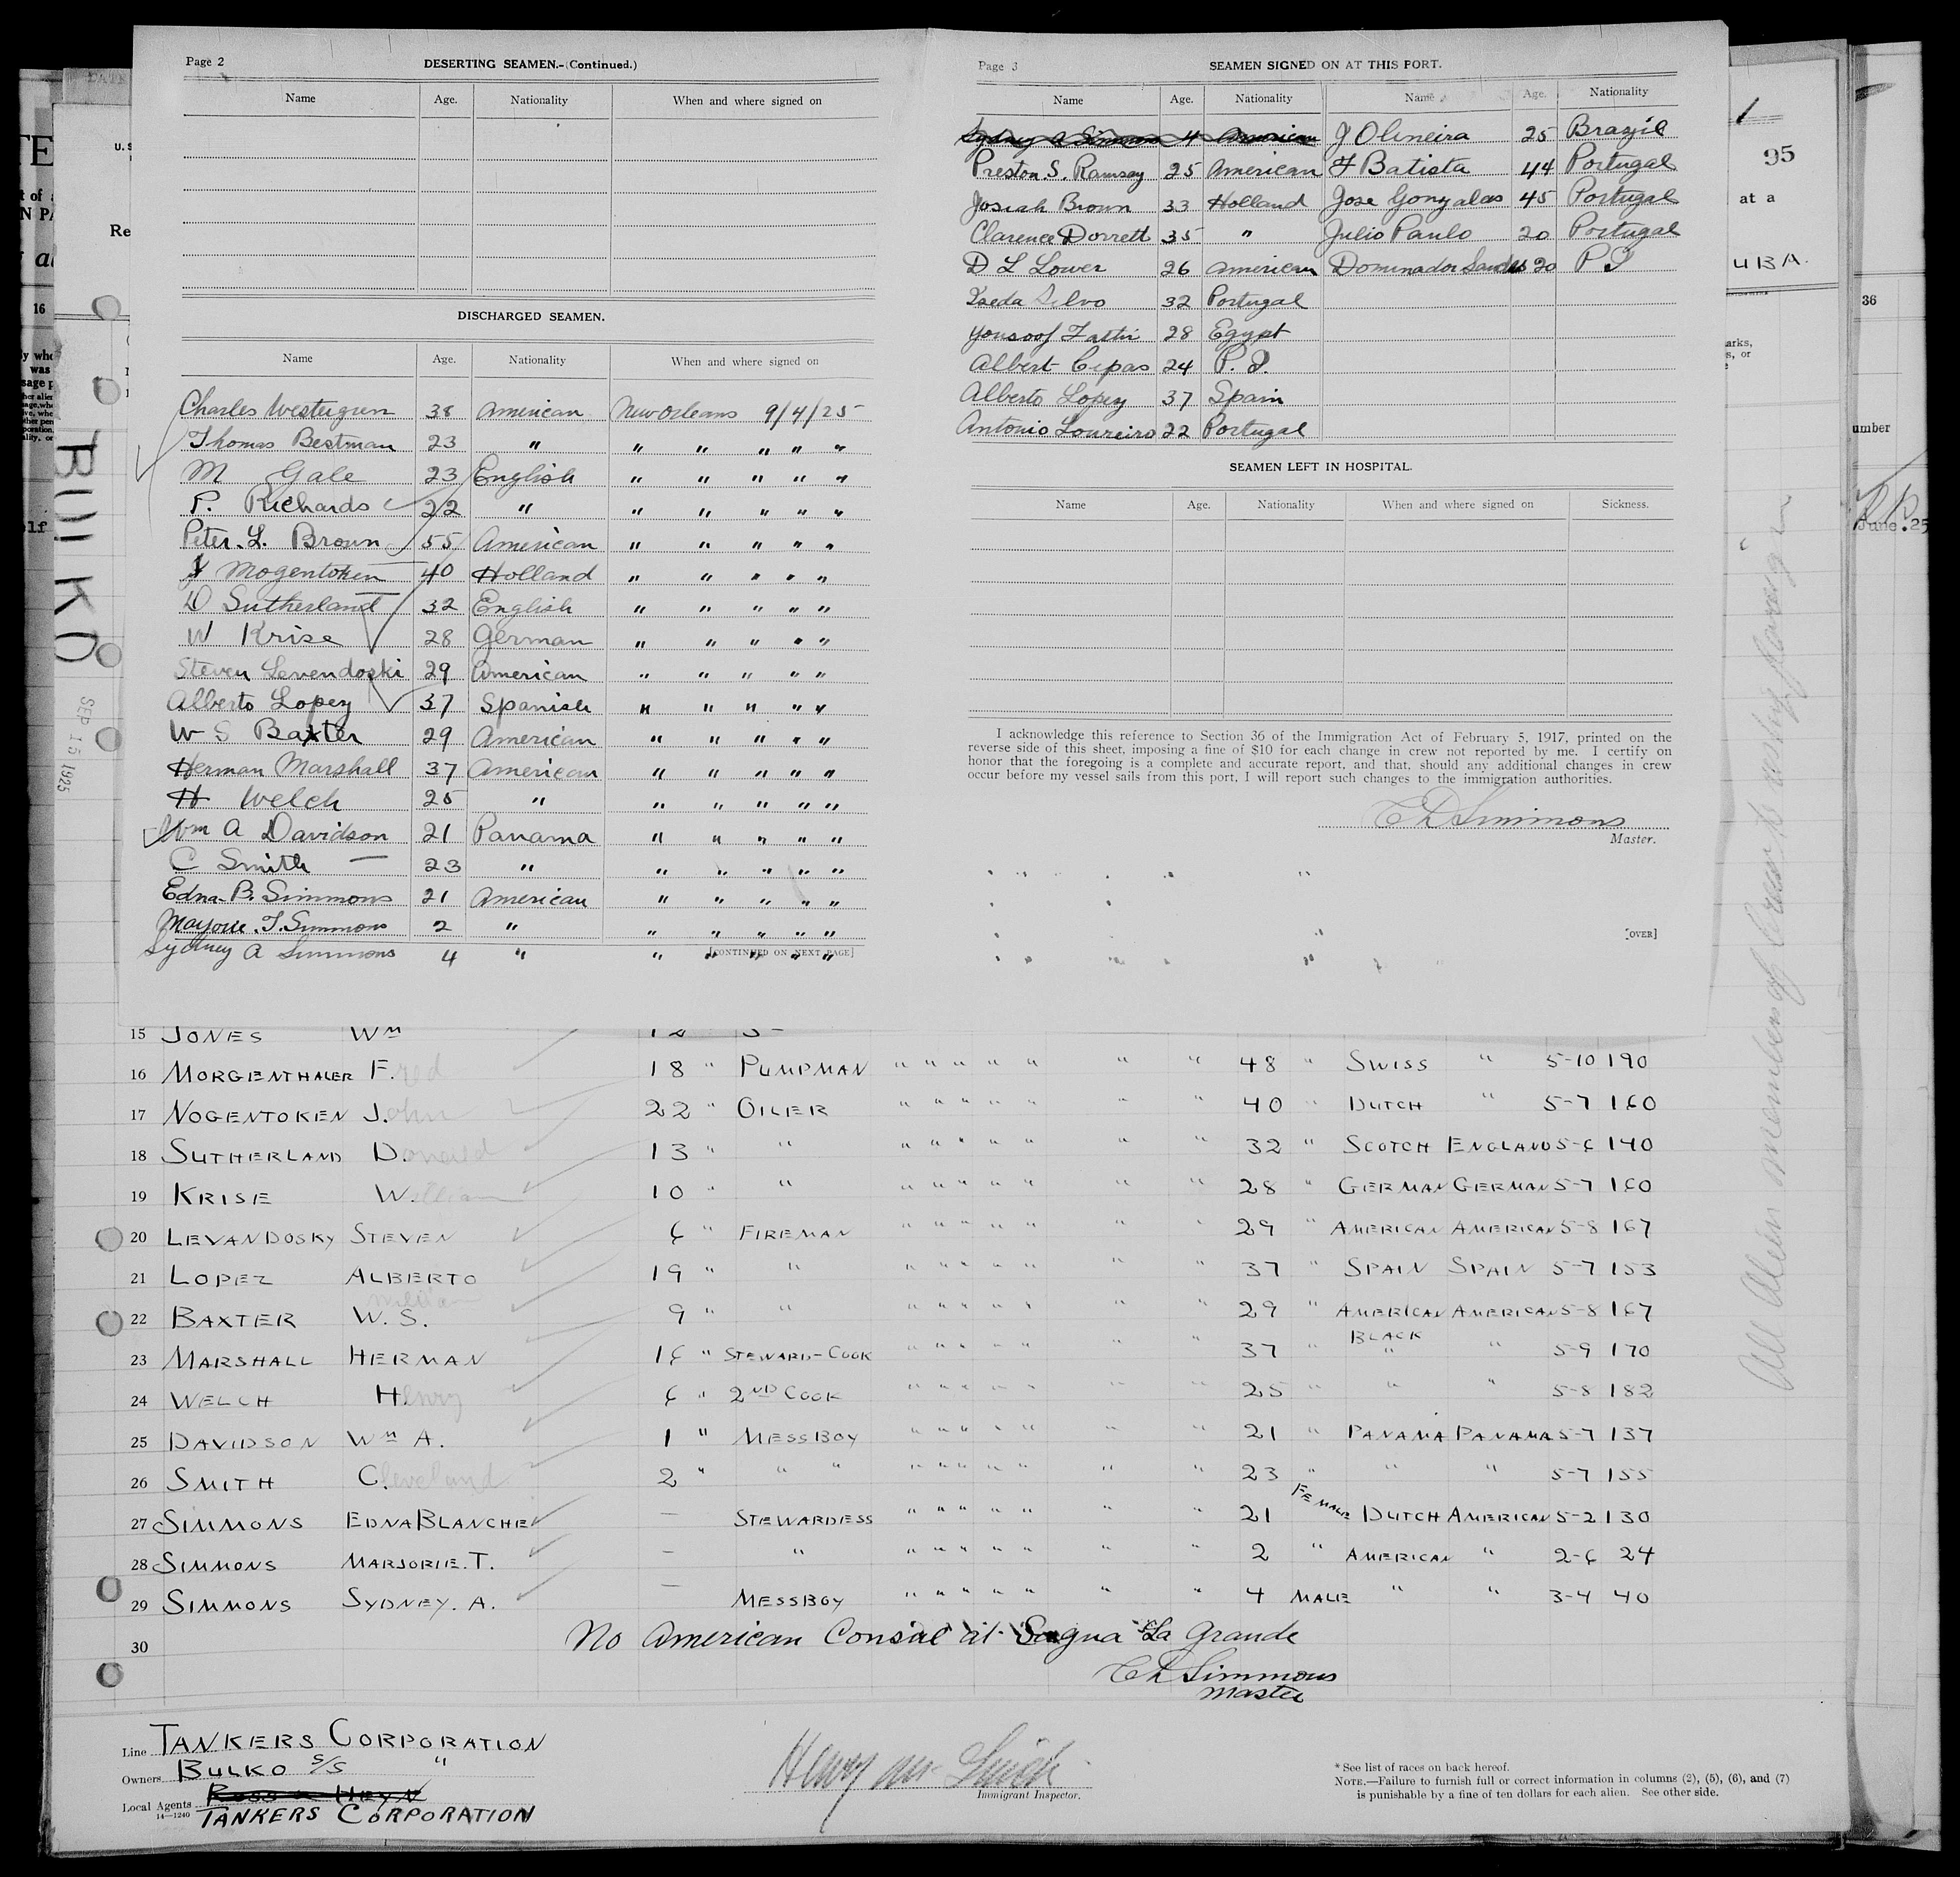 Page 2
DESERTING SEAMEN.-(Continued.)
Name Age. Nationality When and where signed on
DISCHARGED SEAMEN.
Name Age. Nationality When and where signed on
Charles Westergren 38 American New Orleans 9/4/25
Thomas Bestman 23 " " " " " "
M Gale 23 English " " " " "
P. Richards 22 " " " " " "
Peter. L. Brown 55 American " " " " "
J Mogentoken 40 Holland " " " " "
D Sutherland 32 English " " " " "
W Krise 28 German " " " " "
Steven Levendoski 29 American " " " " "
Alberto Lopez 37 Spanish " " " " "
W S Baxter 29 American " " " " "
Herman Marshall 37 American " " " " "
H Welch 25 " " " " " "
Wm A Davidson 21 Panama " " " " "
C Smith 23 " " " " " "
Edna B. Simmons 21 American " " " " "
Marjorie. T. Simmons 2 " " " " " "
Sydney A Simmons 4 " " " " " "
[CONTINUED ON NEXT PAGE]
Page 3
SEAMEN SIGNED ON AT THIS PORT.
Name Age. Nationality Name Age. Nationality
Sydney A Simmons 4 American J Olineira 25 Brazil
Preston. S. Ramsay 25 American F Batista 44 Portugal
Josiah Brown 33 Holland Jose Gonzalas 45 Portugal
Clarence Dorrett 35 " Julio Paulo 20 Portugal
D L Lower 26 American Dominador 20 P I
Silvo 32 Portugal
Yousoof 28 Egypt
Albert Cipas 24 P. I.
Alberto Lopez 37 Spain
Antonio Loureiro 22 Portugal
SEAMEN LEFT IN HOSPITAL.
Name Age. Nationality When and where signed on Sickness.
I acknowledge this reference to Section 36 of the Immigration Act of February 5, 1917, printed on the
reverse side of this sheet, imposing a fine of $10 for each change in crew not reported by me. I certify on
honor that the foregoing is a complete and accurate report, and that, should any additional changes in crew
occur before my vessel sails from this port, I will report such changes to the immigration authorities.
C D Simmons
Master.
[OVER]
1
95
at a
UBA.
36
umber
June. 25
BULKO
SEP 15 1925
15 JONES Wm
16 MORGENTHALER F.red 18 " PUMPMAN " " " " " " " 48 " SWISS " 5-10 190
17 NOGENTOKEN J.ohn 22 " OILER " " " " " " " 40 " DUTCH " 5-7 160
18 SUTHERLAND D.onald 13 " " " " " " " " " 32 " SCOTCH ENGLAND 5-6 140
19 KRISE William 10 " " " " " " " " " 28 " GERMAN GERMAN 5-7 160
20 LEVANDOSKY STEVEN 6 " FIREMAN " " " " " " " 29 " AMERICAN AMERICAN 5-8 167
21 LOPEZ ALBERTO 19 " " " " " " " " " 37 " SPAIN SPAIN 5-7 153
William
22 BAXTER W. S. 9 " " " " " " " " " 29 " AMERICAN AMERICAN 5-8 167
BLACK
23 MARSHALL HERMAN 16 " STEWARD-COOK " " " " " " " 37 " " " 5-9 170
24 WELCH Henry 6 " 2ND COOK " " " " " " " 25 " " " 5-8 182
25 DAVIDSON Wm A. 1 " MESSBOY " " " " " " " 21 " PANAMA PANAMA 5-7 137
26 SMITH Cleveland 2 " " " " " " " " " " 23 " " " 5-7 155
27 SIMMONS EDNA BLANCHE — STEWARDESS " " " " " " " 21 FEMALE DUTCH AMERICAN 5-2 130
28 SIMMONS MARJORIE. T. — " " " " " " " " 2 " AMERICAN " 2-6 24
29 SIMMONS SYDNEY. A. — MESSBOY " " " " " " " 4 MALE " " 3-4 40
30 No American Consul at Sagua La Grande
C D Simmons
Master
All Alien members of Crew
Line TANKERS CORPORATION
Owners BULKO S/S "
Local Agents
14—1240 TANKERS CORPORATION
Immigrant Inspector.
* See list of races on back hereof.
NOTE.—Failure to furnish full or correct information in columns (2), (5), (6), and (7)
is punishable by a fine of ten dollars for each alien. See other side.